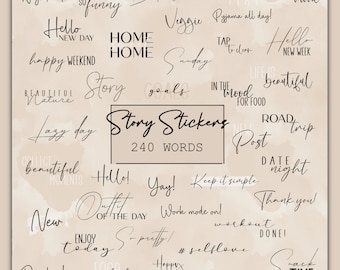 so
funny
Veggie
Pyjama all day!
Hello
NEW DAY
HOME
HOME
TAP
to listen
Hello
NEW WEEK
happy WEEKEND
Sunday
Story
goals
IN THE
mood
FOR FOOD
beautiful
BEAUTIFUL
Nature
Lazy day
Story Stickers
240 WORDS
ROAD
trip
Post
DATE
night
beautiful
Hello!
Yay!
Keep it simple
New
Outfit
OF THE DAY
Work mode on!
Thank you!
ENJOY
today
So pretty!
workout
DONE!
#selflove
Happy